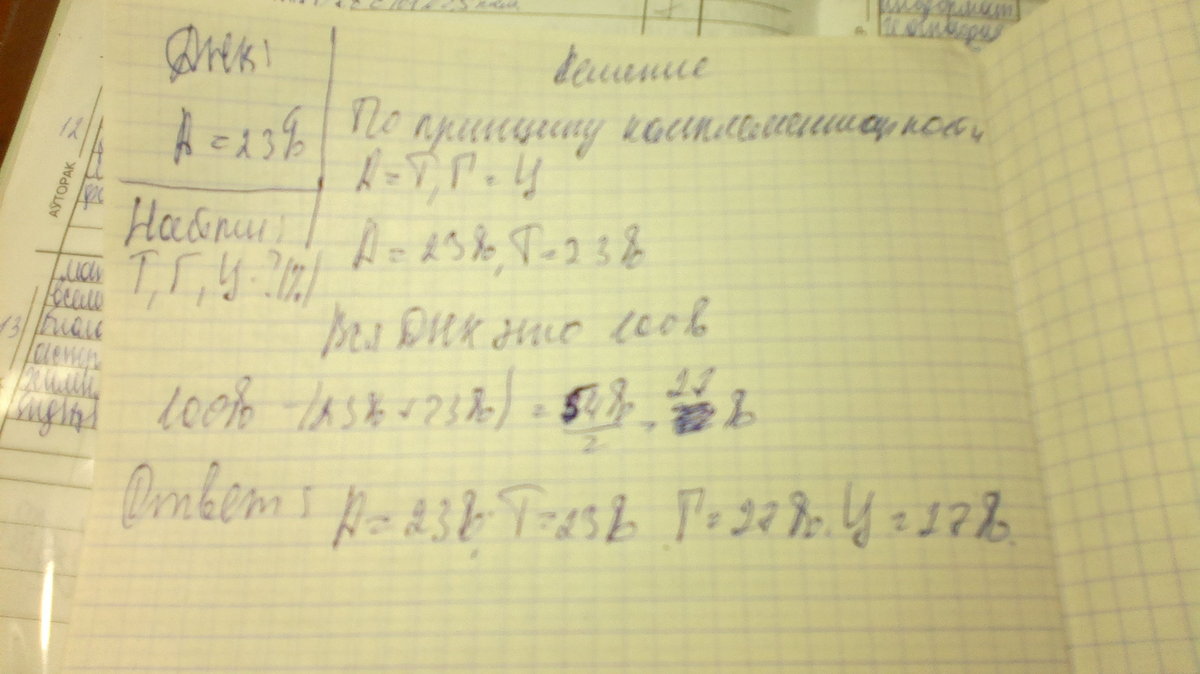 ДНК:
А = 23%
Найти:
Т, Г, Ц - ? (%)
Решение
По принципу комплементарности
А = Т, Г = Ц
А = 23%, Т = 23%
Вся ДНК это 100%
100% - (23% + 23%) = 54%/2 = 27%
Ответ: А = 23%; Т = 23%. Г = 27%. Ц = 27%.
12
АЎТОРАК
13